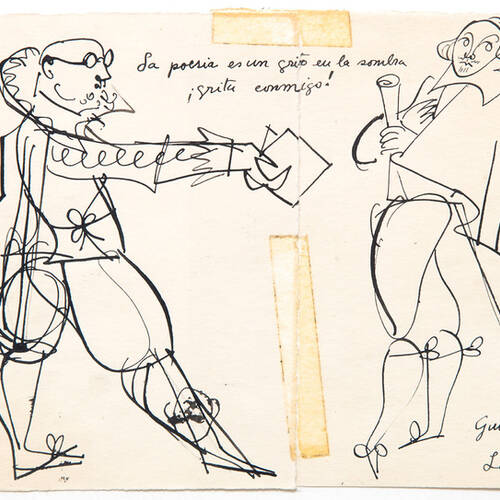 La poesia es un grito en la sombra
¡grita conmigo!
Gui
L